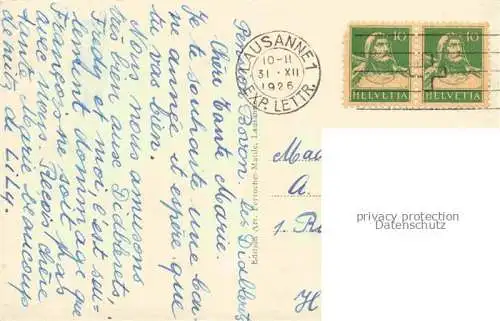 Pension Bovon. Les Diablerets
Chère Tante Marie.
Je te souhaite une bon-
ne année et espère que
tu vas bien.
Nous nous amusons
très bien aux Diablerets,
Fredy et moi, c'est seu-
lement dommage que
François ne soit pas
avec nous. Reçois, chère
Tante Marie, beaucoup
de de Lily.
Edition Art. Perrochet-Matile, Lausanne
LAUSANNE 1
10-11
31·XII
1926
EXP. LETTR.
10
10
HELVETIA
HELVETIA
A.
1.
H
privacy protection
Datenschutz